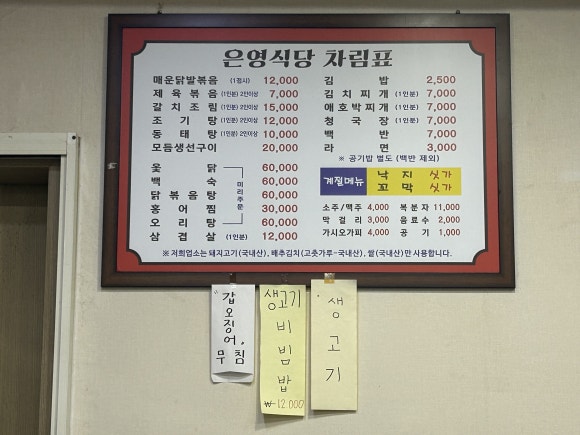 은영식당 차림표
매운닭발볶음 (1접시) 12,000
제육볶음 (1인분) 2인이상 7,000
갈치조림 (1인분) 2인이상 15,000
조기탕 (1인분) 2인이상 12,000
동태탕 (1인분) 2인이상 10,000
모듬생선구이 20,000
옻닭 60,000
백숙 60,000
닭볶음탕 60,000
홍어찜 30,000
오리탕 60,000
미리주문
삼겹살 (1인분) 12,000
김밥 2,500
김치찌개 (1인분) 7,000
애호박찌개 (1인분) 7,000
청국장 (1인분) 7,000
백반 7,000
라면 3,000
※ 공기밥 별도 (백반 제외)
계절메뉴
낙지 싯가
꼬막 싯가
소주/맥주 4,000 복분자 11,000
막걸리 3,000 음료수 2,000
가시오가피 4,000 공기 1,000
※ 저희업소는 돼지고기(국내산), 배추김치(고춧가루-국내산), 쌀(국내산)만 사용합니다.
갑오징어,
무침
생고기
비
빔
밥
₩12.000
생
고
기